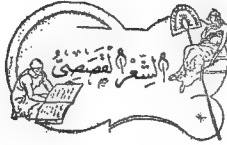 الشِّعْرُ الْقَصَصِيّ